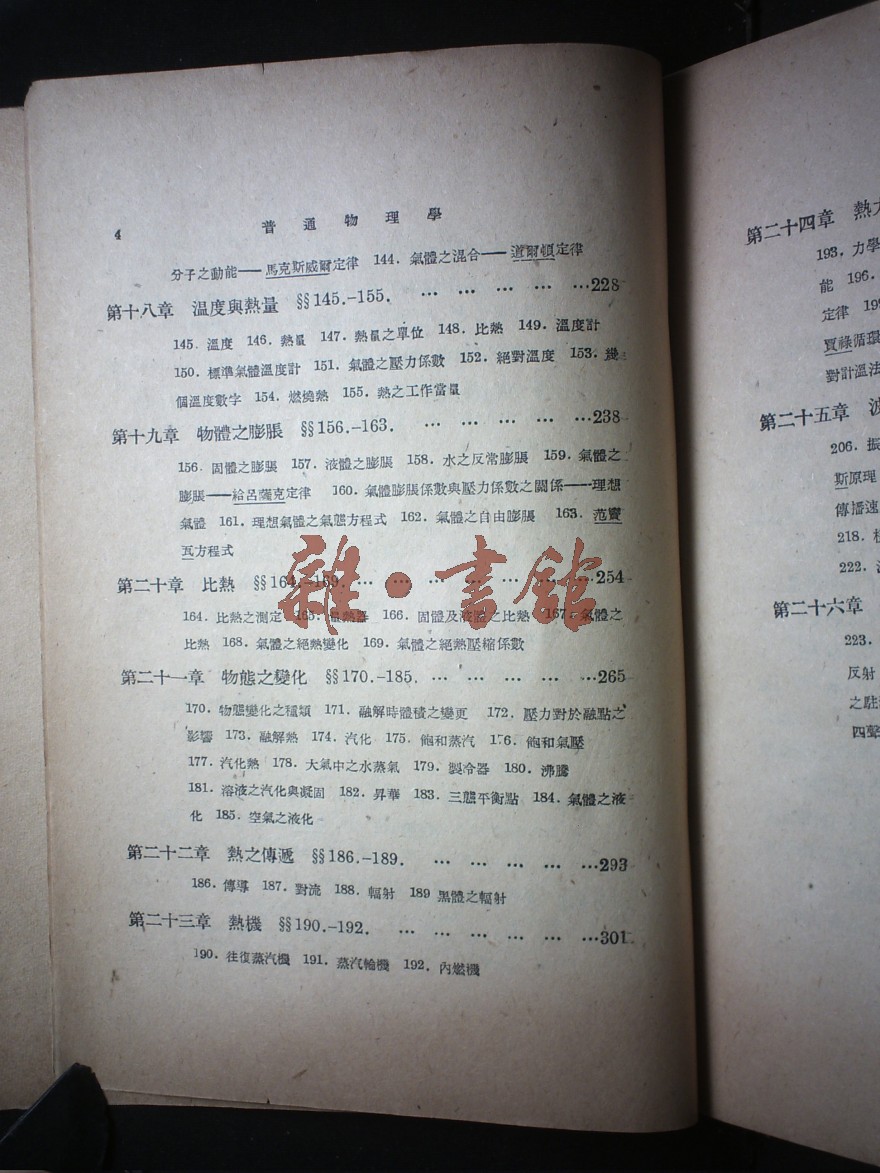 4 普通物理學
分子之動能——馬克斯威爾定律 144. 氣體之混合——道爾頓定律
第十八章 溫度與熱量 §§145.-155. … … … … …228
145. 溫度 146. 熱量 147. 熱量之單位 148. 比熱 149. 溫度計
150. 標準氣體溫度計 151. 氣體之壓力係數 152. 絕對溫度 153. 幾
個溫度數字 154. 燃燒熱 155. 熱之工作當量
第十九章 物體之膨脹 §§156.-163. … … … … …238
156. 固體之膨脹 157. 液體之膨脹 158. 水之反常膨脹 159. 氣體之
膨脹——給呂薩克定律 160. 氣體膨脹係數與壓力係數之關係——理想
氣體 161. 理想氣體之氣態方程式 162. 氣體之自由膨脹 163. 范寶
瓦方程式
第二十章 比熱 §§164.-169. … … … … … … …254
164. 比熱之測定 165. 量熱器 166. 固體及液體之比熱 167. 氣體之
比熱 168. 氣體之絕熱變化 169. 氣體之絕熱壓縮係數
第二十一章 物態之變化 §§170.-185. … … … … …265
170. 物態變化之種類 171. 融解時體積之變更 172. 壓力對於融點之
影響 173. 融解熱 174. 汽化 175. 飽和蒸汽 176. 飽和氣壓
177. 汽化熱 178. 大氣中之水蒸氣 179. 製冷器 180. 沸騰
181. 溶液之汽化與凝固 182. 昇華 183. 三態平衡點 184. 氣體之液
化 185. 空氣之液化
第二十二章 熱之傳遞 §§186.-189. … … … … …293
186. 傳導 187. 對流 188. 輻射 189 黑體之輻射
第二十三章 熱機 §§190.-192. … … … … … …301
190. 往復蒸汽機 191. 蒸汽輪機 192. 內燃機
雜·書館
第二十四章 熱
193. 力學
能 196.
定律 19
賈祿循環
對計溫法
第二十五章 波
206. 振
斯原理
傳播速
218.
222.
第二十六章
223.
反射
之駐
四聲